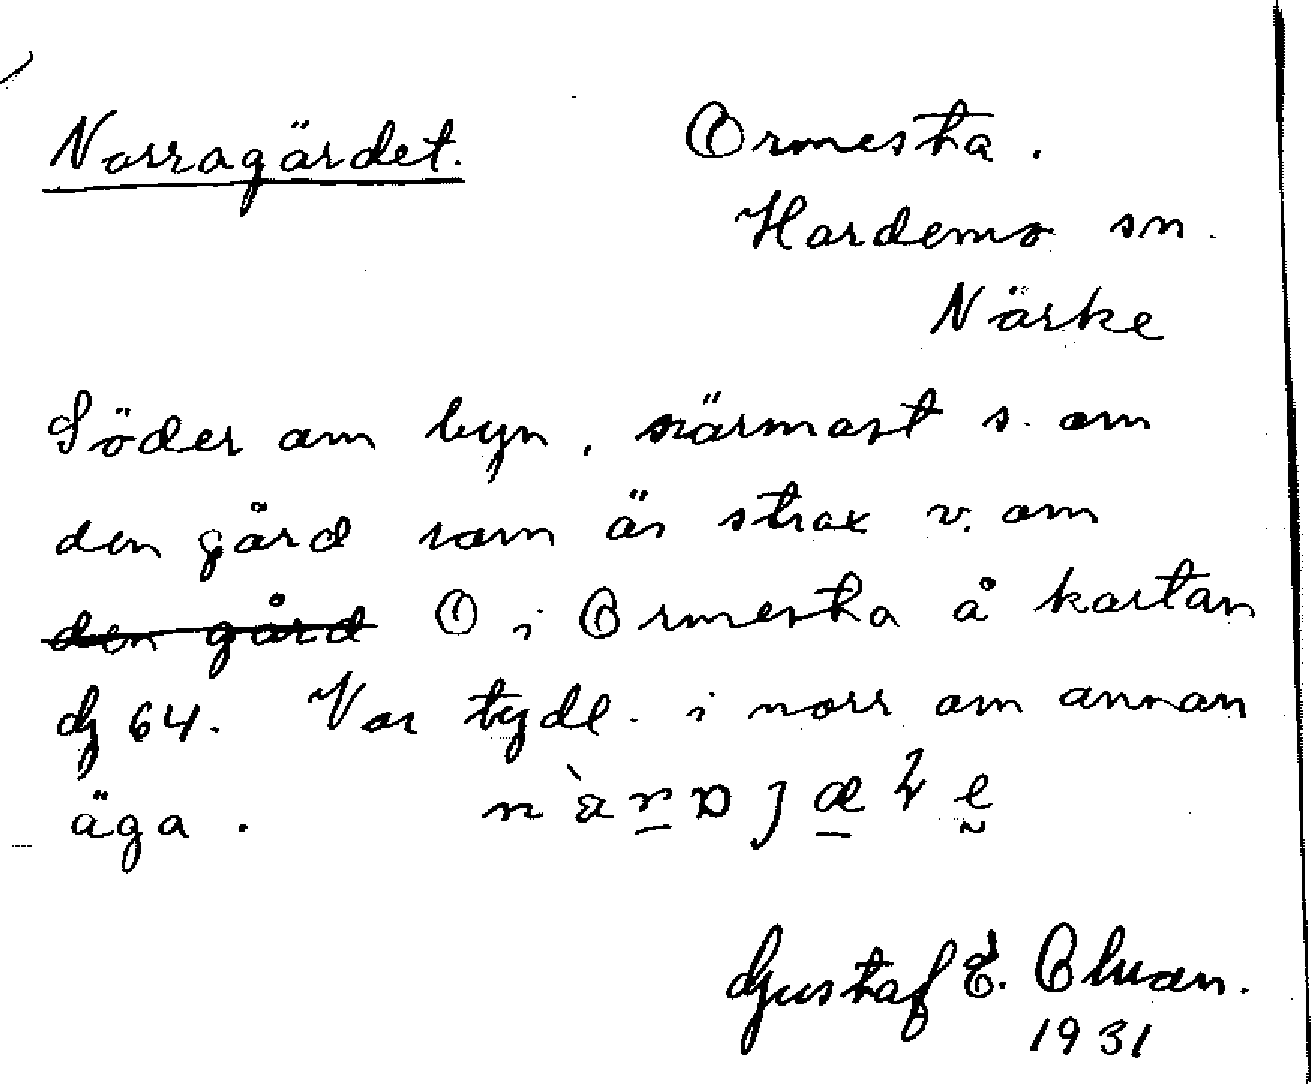 Norragärdet. Ormesta.
Hardemo sn.
Närke
Söder om byn, närmast s. om
den gård som är strax v. om
den gård O i Ormesta å kartan
dz 64. Var tydl. i norr om annan
äga.
Gustaf E. Olsson.
1931